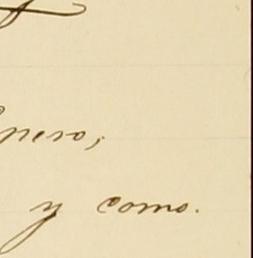 pero;
y como.